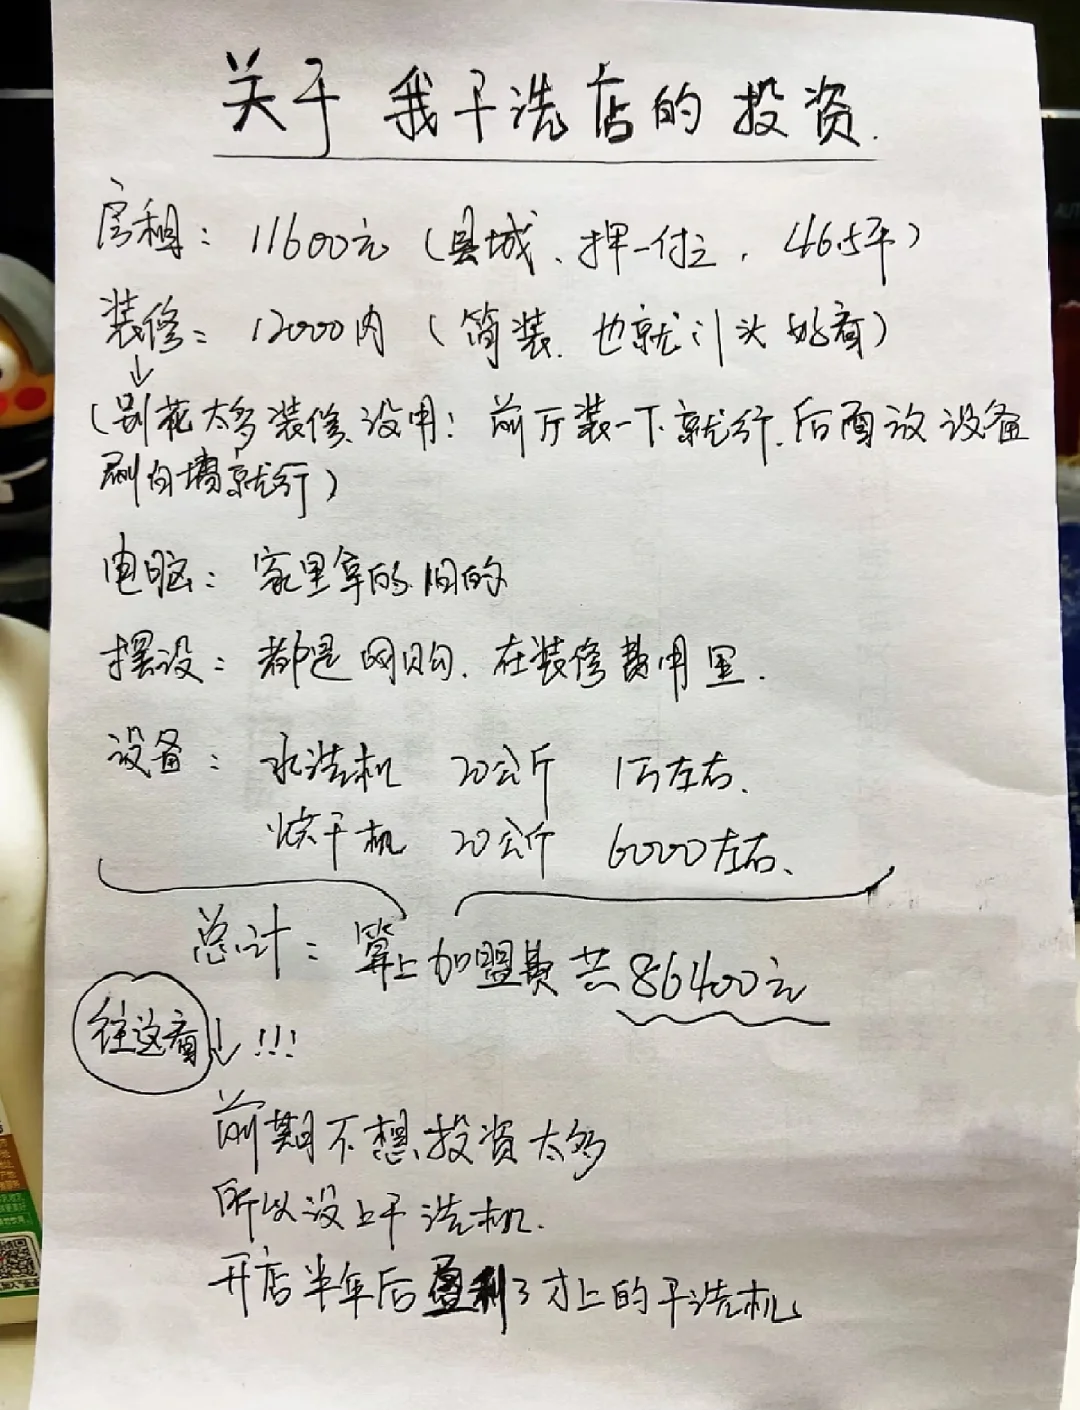 关于我干洗店的投资.
房租：11600元（县城、押一付三，46.5平）
装修：12000内（简装.也就门头好看）
（别花太多装修没用！前厅装一下就行.后面放设备
刷白墙就行）
电脑：家里拿的旧的
摆设：都是网购.在装修费用里.
设备：水洗机 20公斤 1万左右.
烘干机 20公斤 6000左右、
总计：算上加盟费共86400元
往这看↓!!!
前期不想投资太多
所以没上干洗机.
开店半年后盈利了才上的干洗机